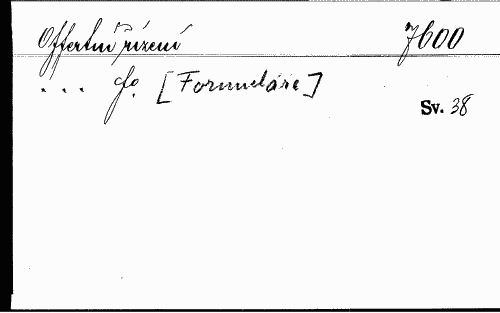 Offertní řízení 7600
. . . fo. [Formuláře]
Sv. 38